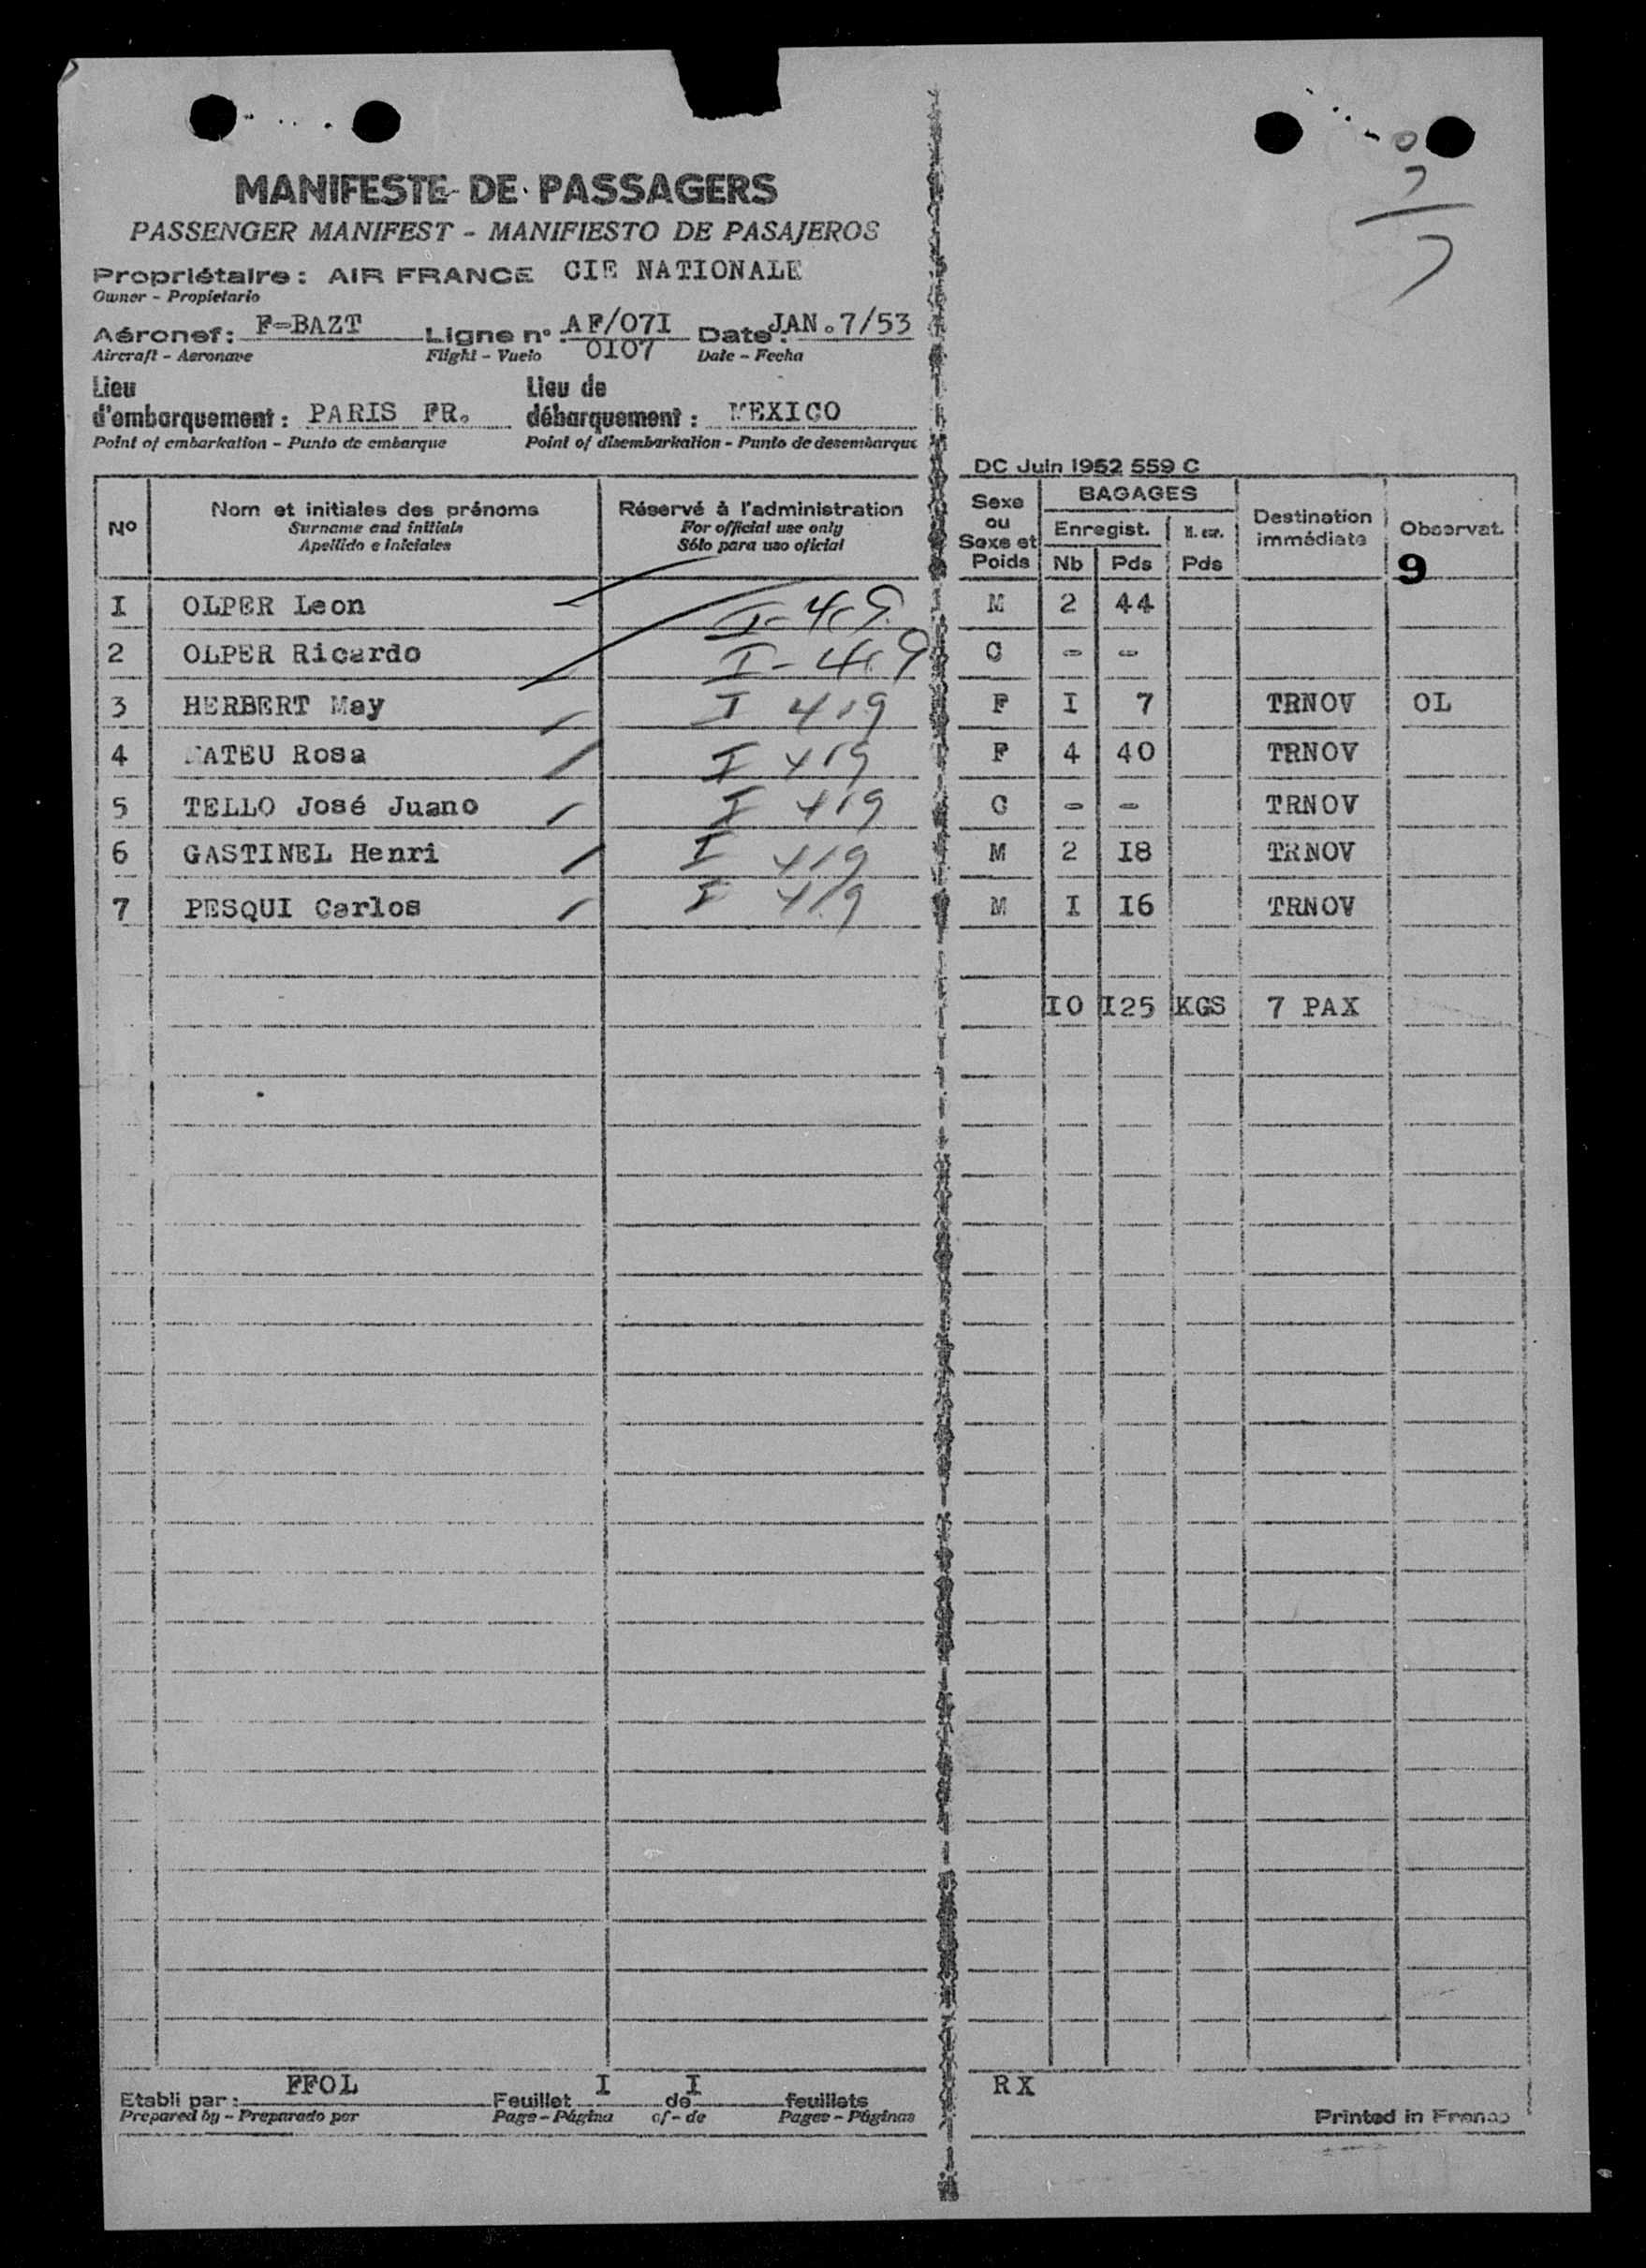 MANIFESTE DE PASSAGERS
PASSENGER MANIFEST - MANIFIESTO DE PASAJEROS
Propriétaire : AIR FRANCE CIE NATIONALE
Owner - Propietario
Aéronef : F-BAZT Ligne n° : AF/07I Date : JAN.7/53
Aircraft - Aeronave Flight - Vuelo 0107 Date - Fecha
Lieu Lieu de
d'embarquement : PARIS FR. débarquement : MEXICO
Point of embarkation - Punto de embarque Point of disembarkation - Punto de desembarque
DC Juin 1952 559 C
N° Nom et initiales des prénoms Réservé à l'administration Sexe ou Sexe et Poids BAGAGES Destination immédiate Observat.
Surname and initials For official use only Enregist.
Apellido e iniciales Sólo para uso oficial Nb Pds Pds 9
I OLPER Leon I-419 M 2 44
2 OLPER Ricardo I-419 C - -
3 HERBERT May I 419 F I 7 TRNOV OL
4 MATEU Rosa I 419 F 4 40 TRNOV
5 TELLO José Juano I 419 C - - TRNOV
6 GASTINEL Henri I 419 M 2 I8 TRNOV
7 PESQUI Carlos I 419 M I I6 TRNOV
I0 I25 KGS 7 PAX
Etabli par : FFOL Feuillet I de I feuillets RX
Prepared by - Preparado por Page - Página of - de Pages - Páginas Printed in France